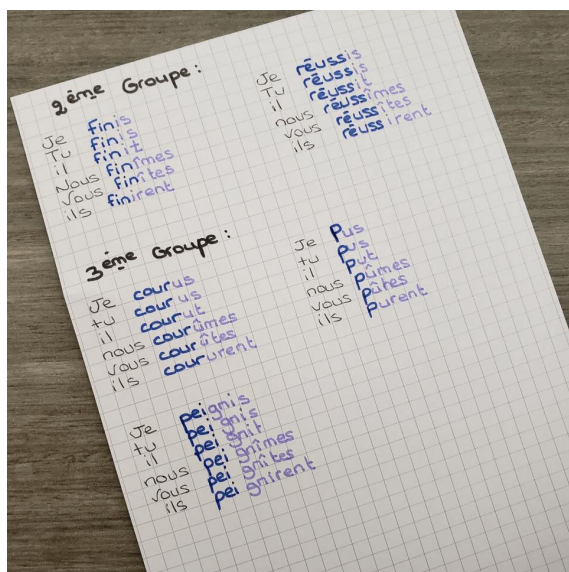 2ème Groupe :
Je finis
Tu finis
il finit
Nous finîmes
Vous finîtes
ils finirent
Je réussis
Tu réussis
il réussit
nous réussîmes
vous réussîtes
ils réussirent
3ème Groupe :
Je courus
tu courus
il courut
nous courûmes
vous courûtes
ils coururent
Je Pus
tu pus
il put
nous pûmes
vous pûtes
ils purent
Je peignis
tu peignis
il peignit
nous peignîmes
vous peignîtes
ils peignirent